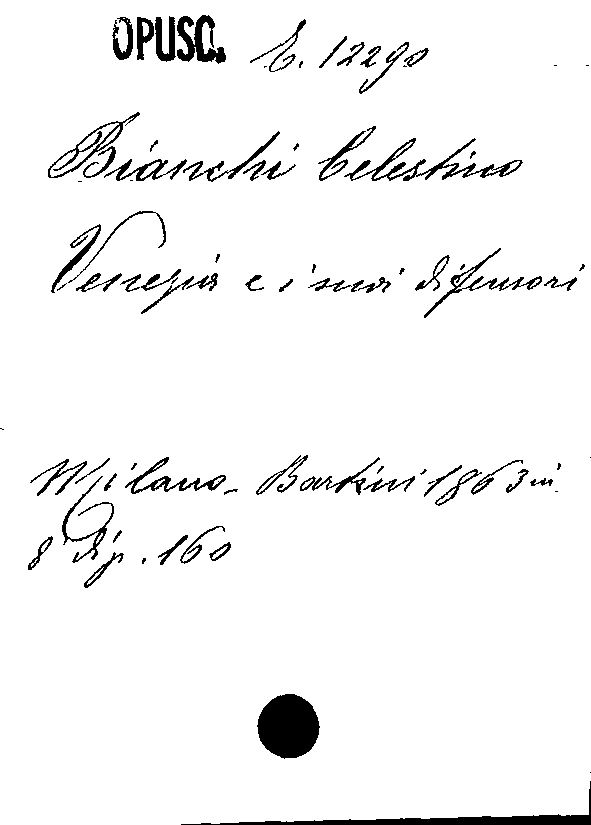 OPUSC. E. 12290
Bianchi Celestino
Venezia e i suoi difensori
Milano - Bartini 1863 in
8° di p. 160